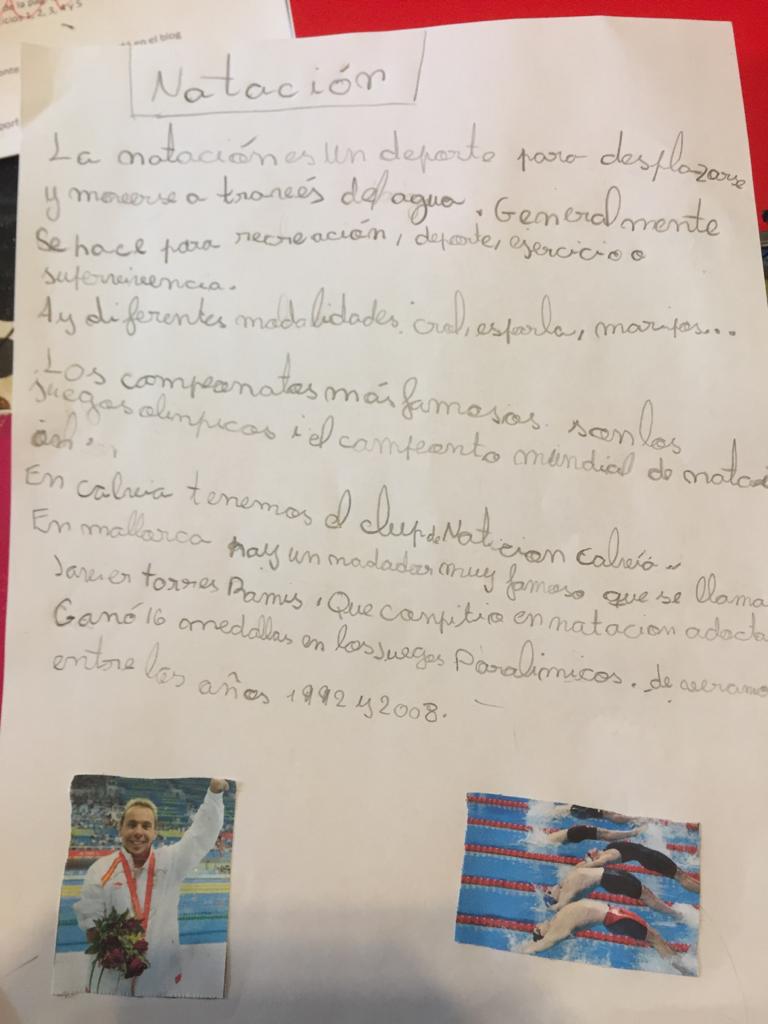 cicios 1, 2, 3, 4 y 5
en el blog
Natación
La natación es un deporte para desplazarse
y moverse a traveés del agua. Generalmente
se hace para recreación, deporte, ejercicio o
supervivencia.
Ay diferentes modalidades: crol, esparla, maripos...
Los campeonatos más famosos. son los
juegos olimpicos i el campeonto mundial de nataci
ón.
En calvia tenemos el clup de Naticion Calvià
En mallarca hay un nadador muy famoso que se llama
Javier torres Ramis, Que conpitio en natacion adacta
Ganó 16 medallas en los Juegos Paralimicos. de verano
entre los años 1992 y 2008.